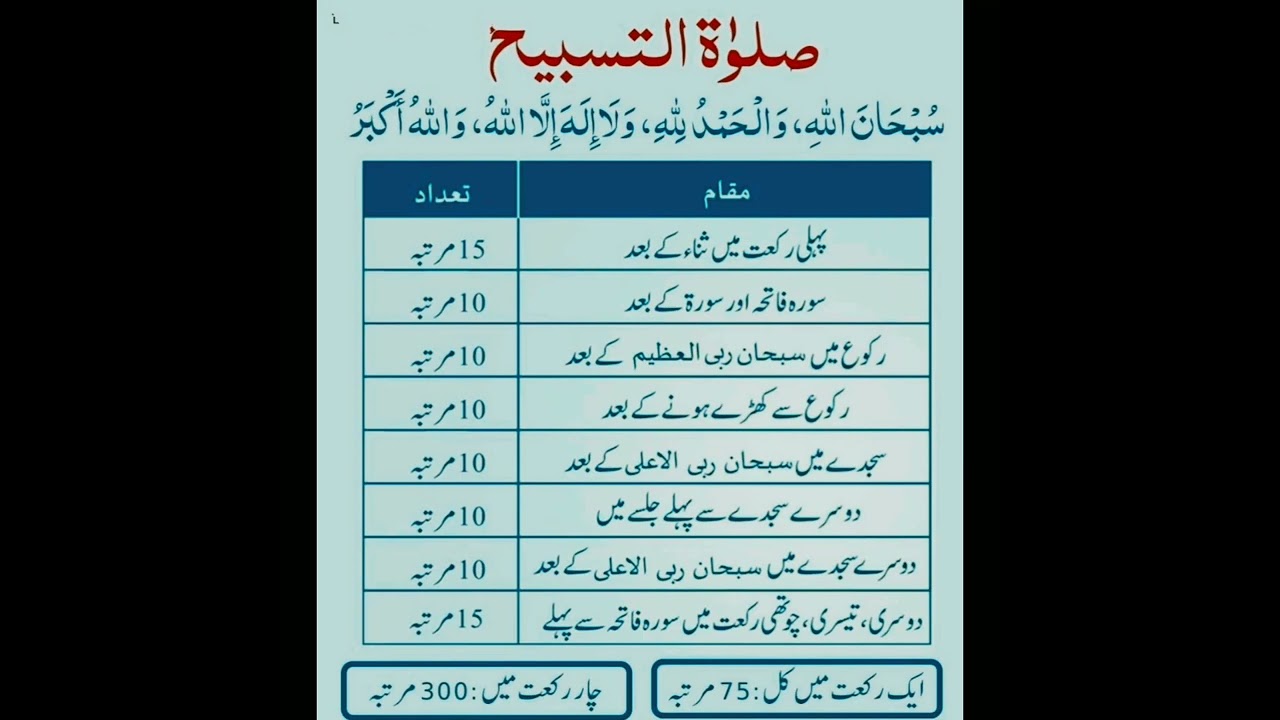 صلوٰۃ التسبیح
سُبْحَانَ اللهِ، وَالْحَمْدُ لِلهِ، وَلَا إِلَهَ إِلَّا اللهُ، وَاللهُ أَكْبَرُ
مقام تعداد
پہلی رکعت میں ثناء کے بعد 15 مرتبہ
سورہ فاتحہ اور سورۃ کے بعد 10 مرتبہ
رکوع میں سبحان ربی العظیم کے بعد 10 مرتبہ
رکوع سے کھڑے ہونے کے بعد 10 مرتبہ
سجدے میں سبحان ربی الاعلی کے بعد 10 مرتبہ
دوسرے سجدے سے پہلے جلسے میں 10 مرتبہ
دوسرے سجدے میں سبحان ربی الاعلی کے بعد 10 مرتبہ
دوسری، تیسری، چوتھی رکعت میں سورہ فاتحہ سے پہلے 15 مرتبہ
ایک رکعت میں کل: 75 مرتبہ چار رکعت میں: 300 مرتبہ